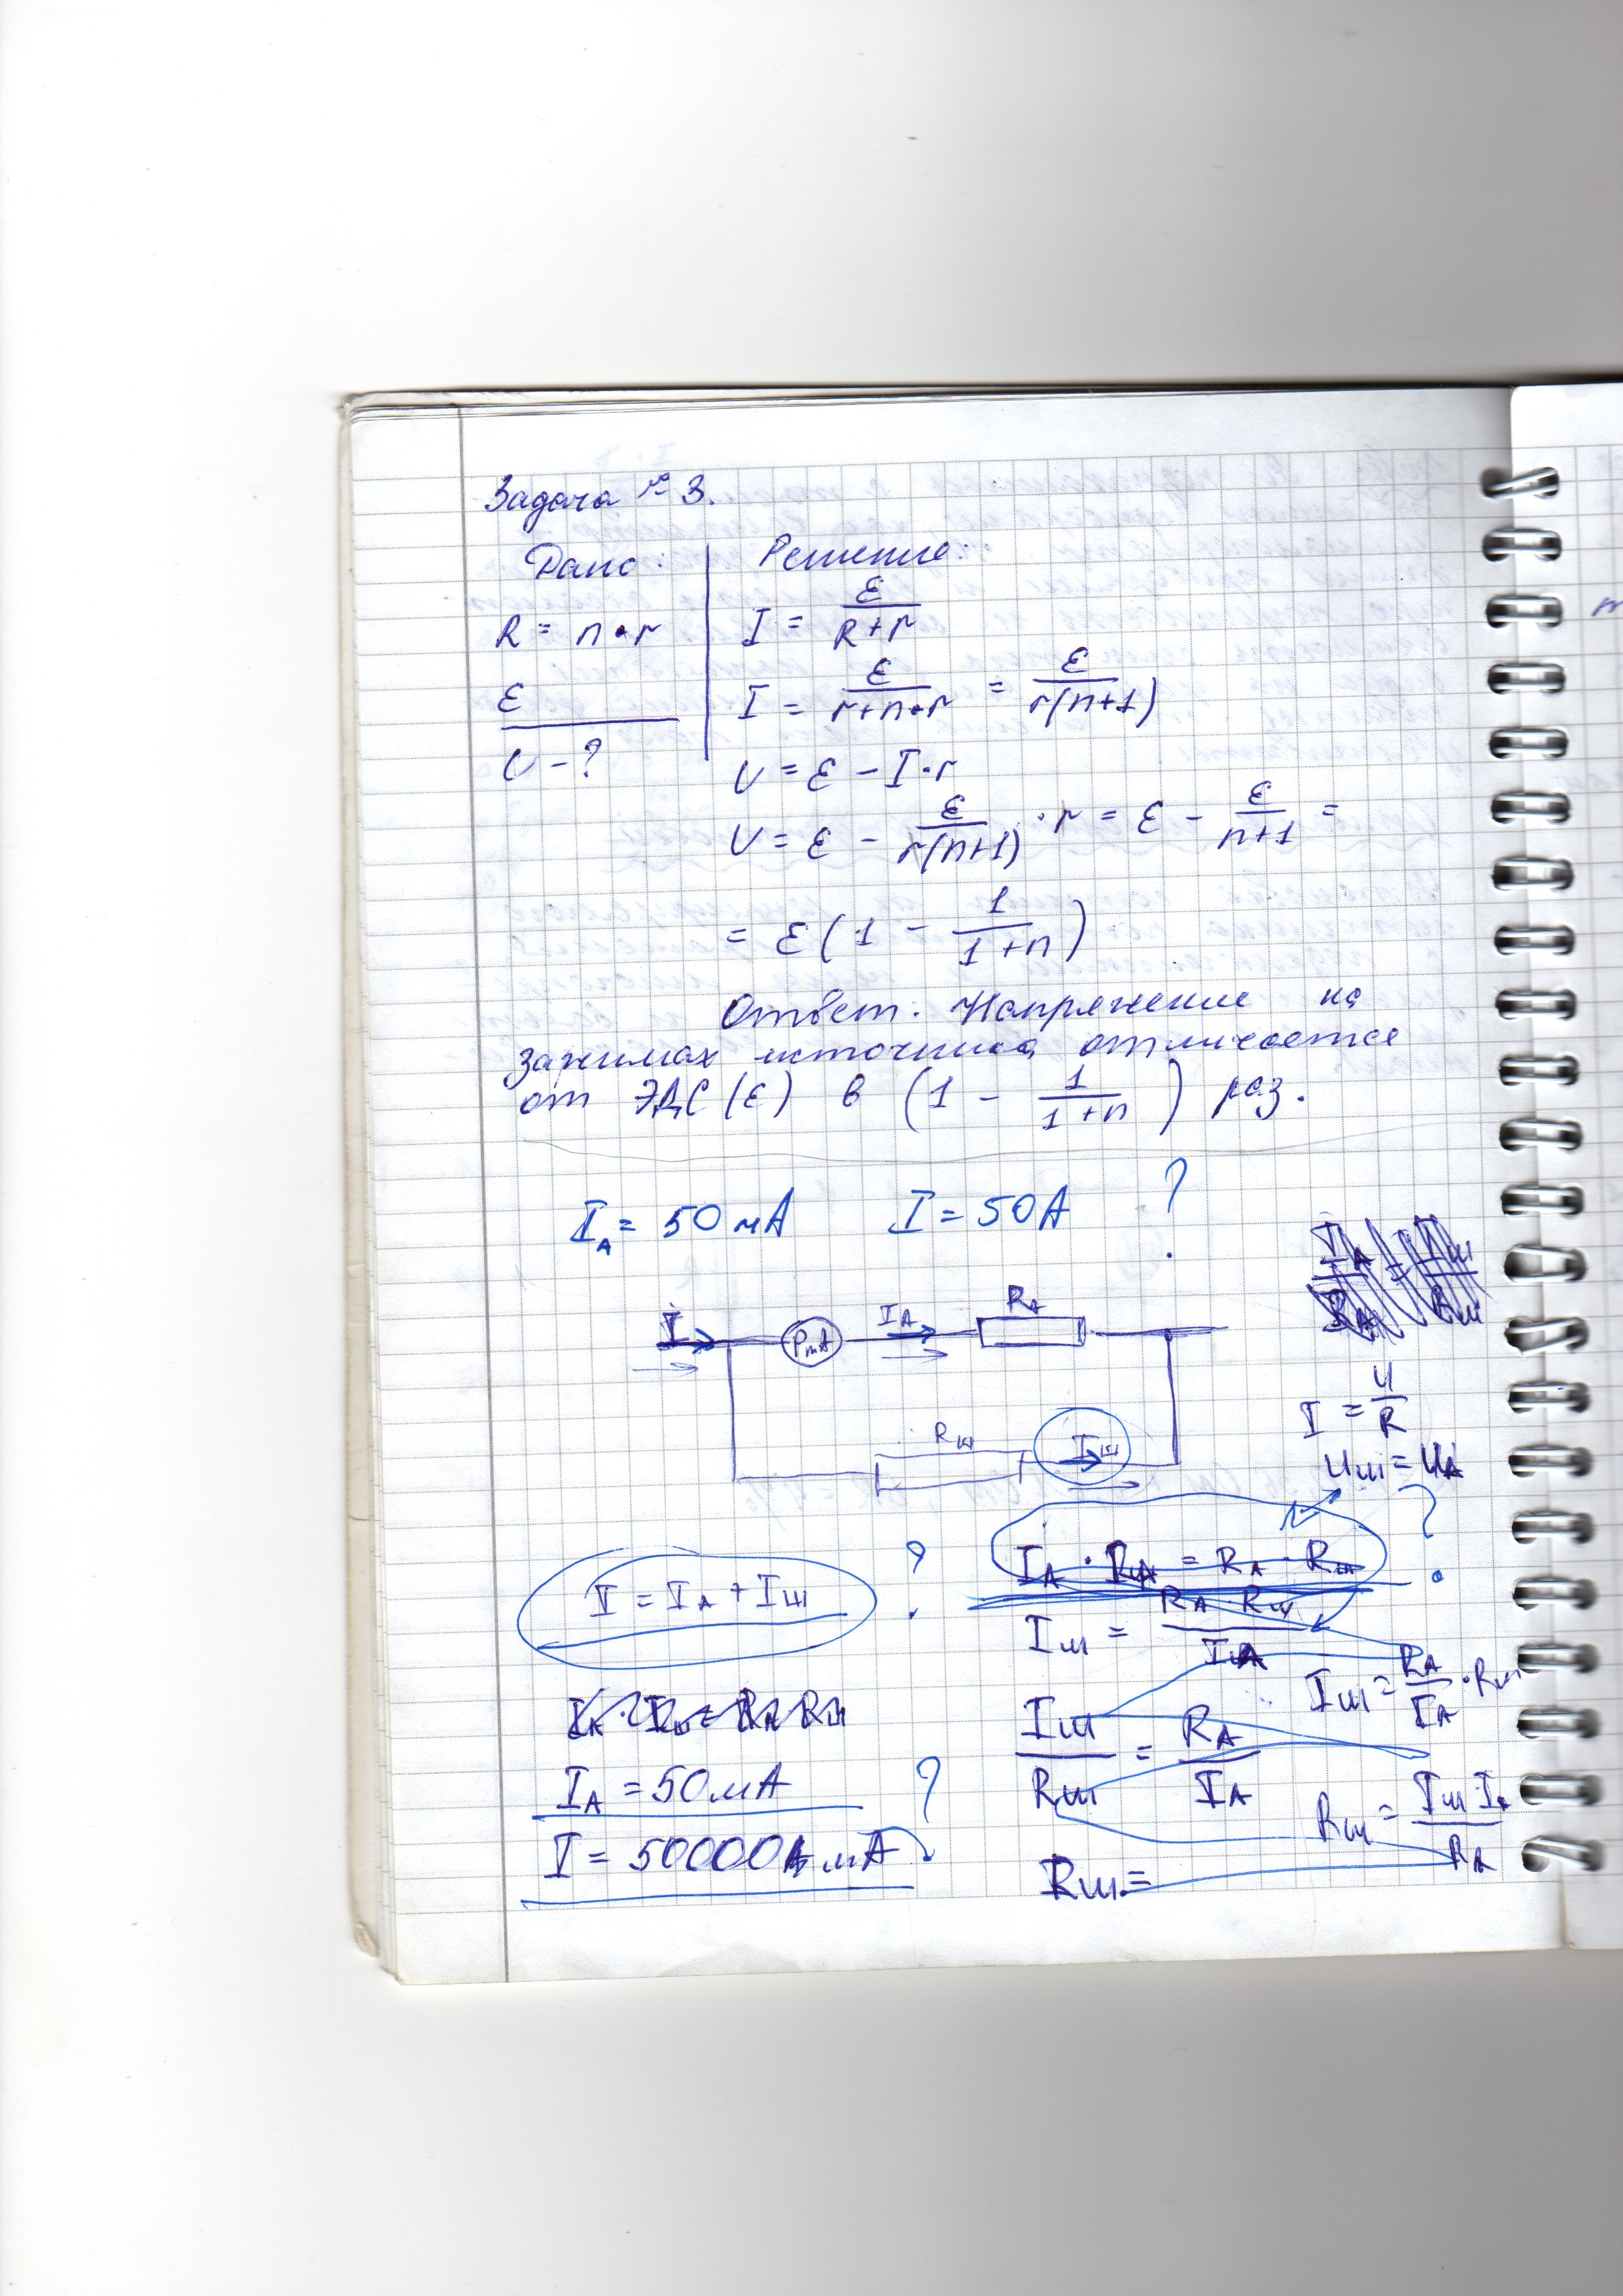 Задача № 3.
Дано:
R = n • r
ε
U - ?
Решение:
I = ε / (R + r)
I = ε / (r + n • r) = ε / r(n+1)
U = ε - I • r
U = ε - ε / r(n+1) • r = ε - ε / n+1 =
= ε (1 - 1 / 1+n)
Ответ. Напряжение на
зажимах источника отличается
от ЭДС (ε) в (1 - 1 / 1+n) раз.
I_A = 50 мА I = 50 А ?
I PmA I_A R_A
R_ш I_ш
I = U / R
U_ш = U_A
I = I_A + I_ш ?
I_A = 50 мА ?
I = 50000 мА
I_ш = R_A · R_ш / I_A
I_ш = R_A / I_A · R_ш
I_ш / R_ш = R_A / I_A
R_ш = I_ш I_A / R_A
R_ш =